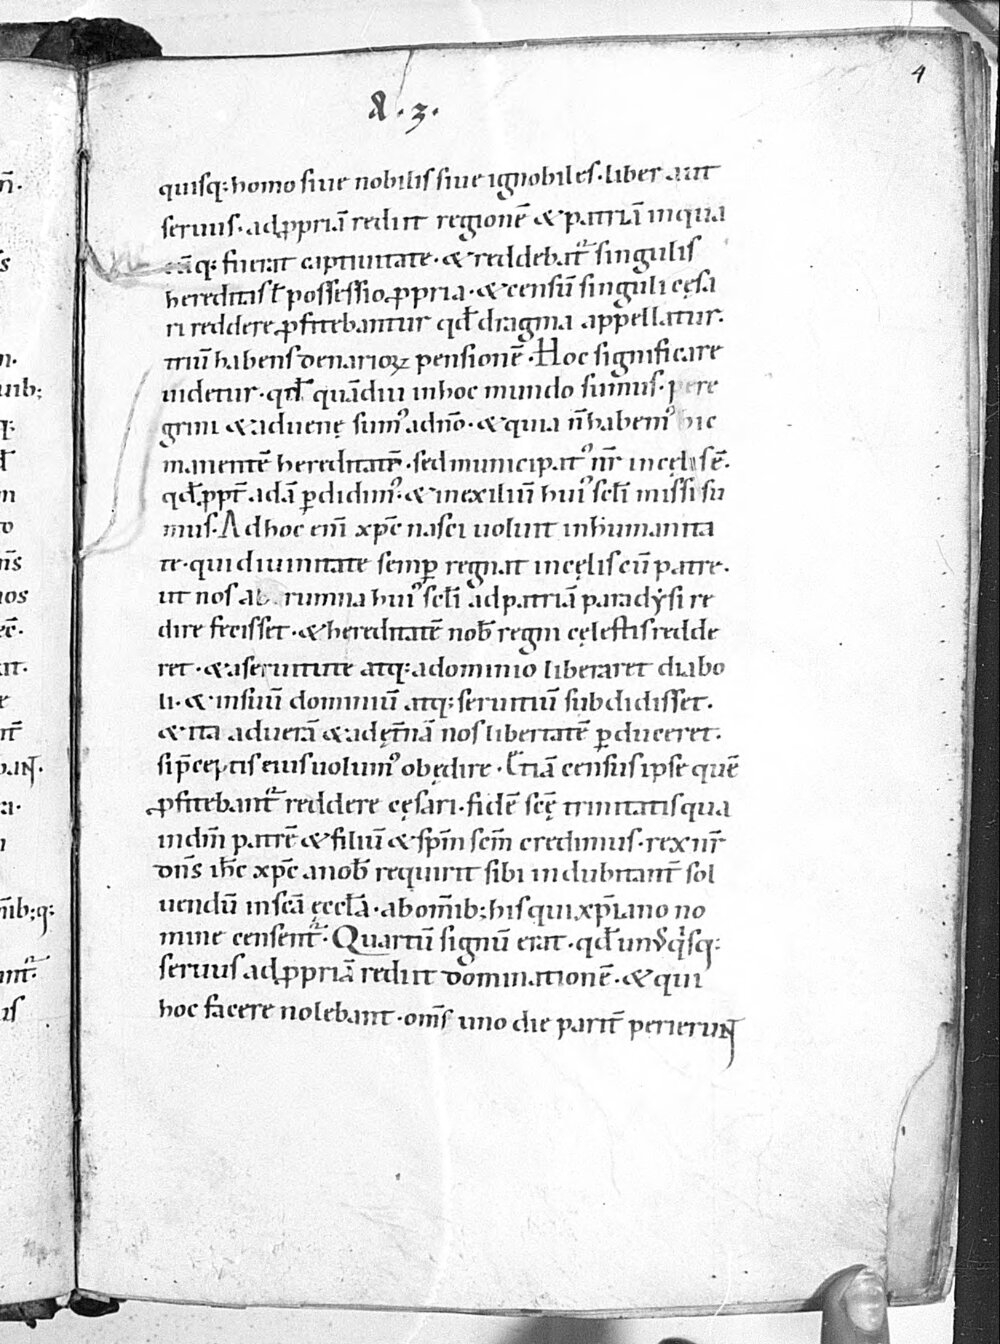 4
A. 3.
n̄.
quisq; homo siue nobilis siue ignobiles. liber aut
seruus. adꝓpriā rediit regionē & patriā inqua
cāq; fuerat captiuitate. & reddebat᷑ singulis
hereditas ł possessio ꝓpria. & censū singuli cęsa
ri reddere ꝓfitebantur qđ dragma appellatur.
triū habens denarioꝝ pensionē. Hoc significare
uidetur. qđ quādiu inhoc mundo sumus. pere
grini & aduenę sumꝰ adn̄o. & quia n̄ habemꝰ hic
manentē hereditatē. sed municipatꝰ nr̄ incęlis ē.
qđ ꝓpt̄ adā ꝑdidimꝰ. & inexiliū huiꝰ scl̄i missi su
mus. Ad hoc eni̅ xp̄c nasci uoluit inhumanita
te. qui diuinitate semꝑ regnat incęlis cū patre.
ut nos ab erumna huiꝰ scl̄i adpatriā paradẏsi re
dire fecisset. & hereditatē nob̄ regni cęlestis redde
ret. & aseruitute atq; adominio liberaret diabo
li. & insuū dominiū atq; seruitiū subdidisset.
& ita aduerā & adęt̄nā nos libertatē ꝑduceret.
si p̄ceptis eius uolumꝰ obędire. Etiā census ipse quē
ꝓfitebant᷑ reddere cęsari. fidē scę̄ trinitatis qua
indm̄ patrē & filiū & sp̄m scm̄ credimus. rex nr̄
dn̄s ih̄c xp̄c anob̄ requirit sibi indubitant̄ sol
uendū inscā ęccl̄a. abom̄ib; his qui xp̄iano no
mine censent᷑. Quartū signū erat. qđ unꝰqͥsq;
seruus adꝓpriā rediit dominationē. & qui
hoc facere nolebant. om̄s uno die parit̄ perierunt